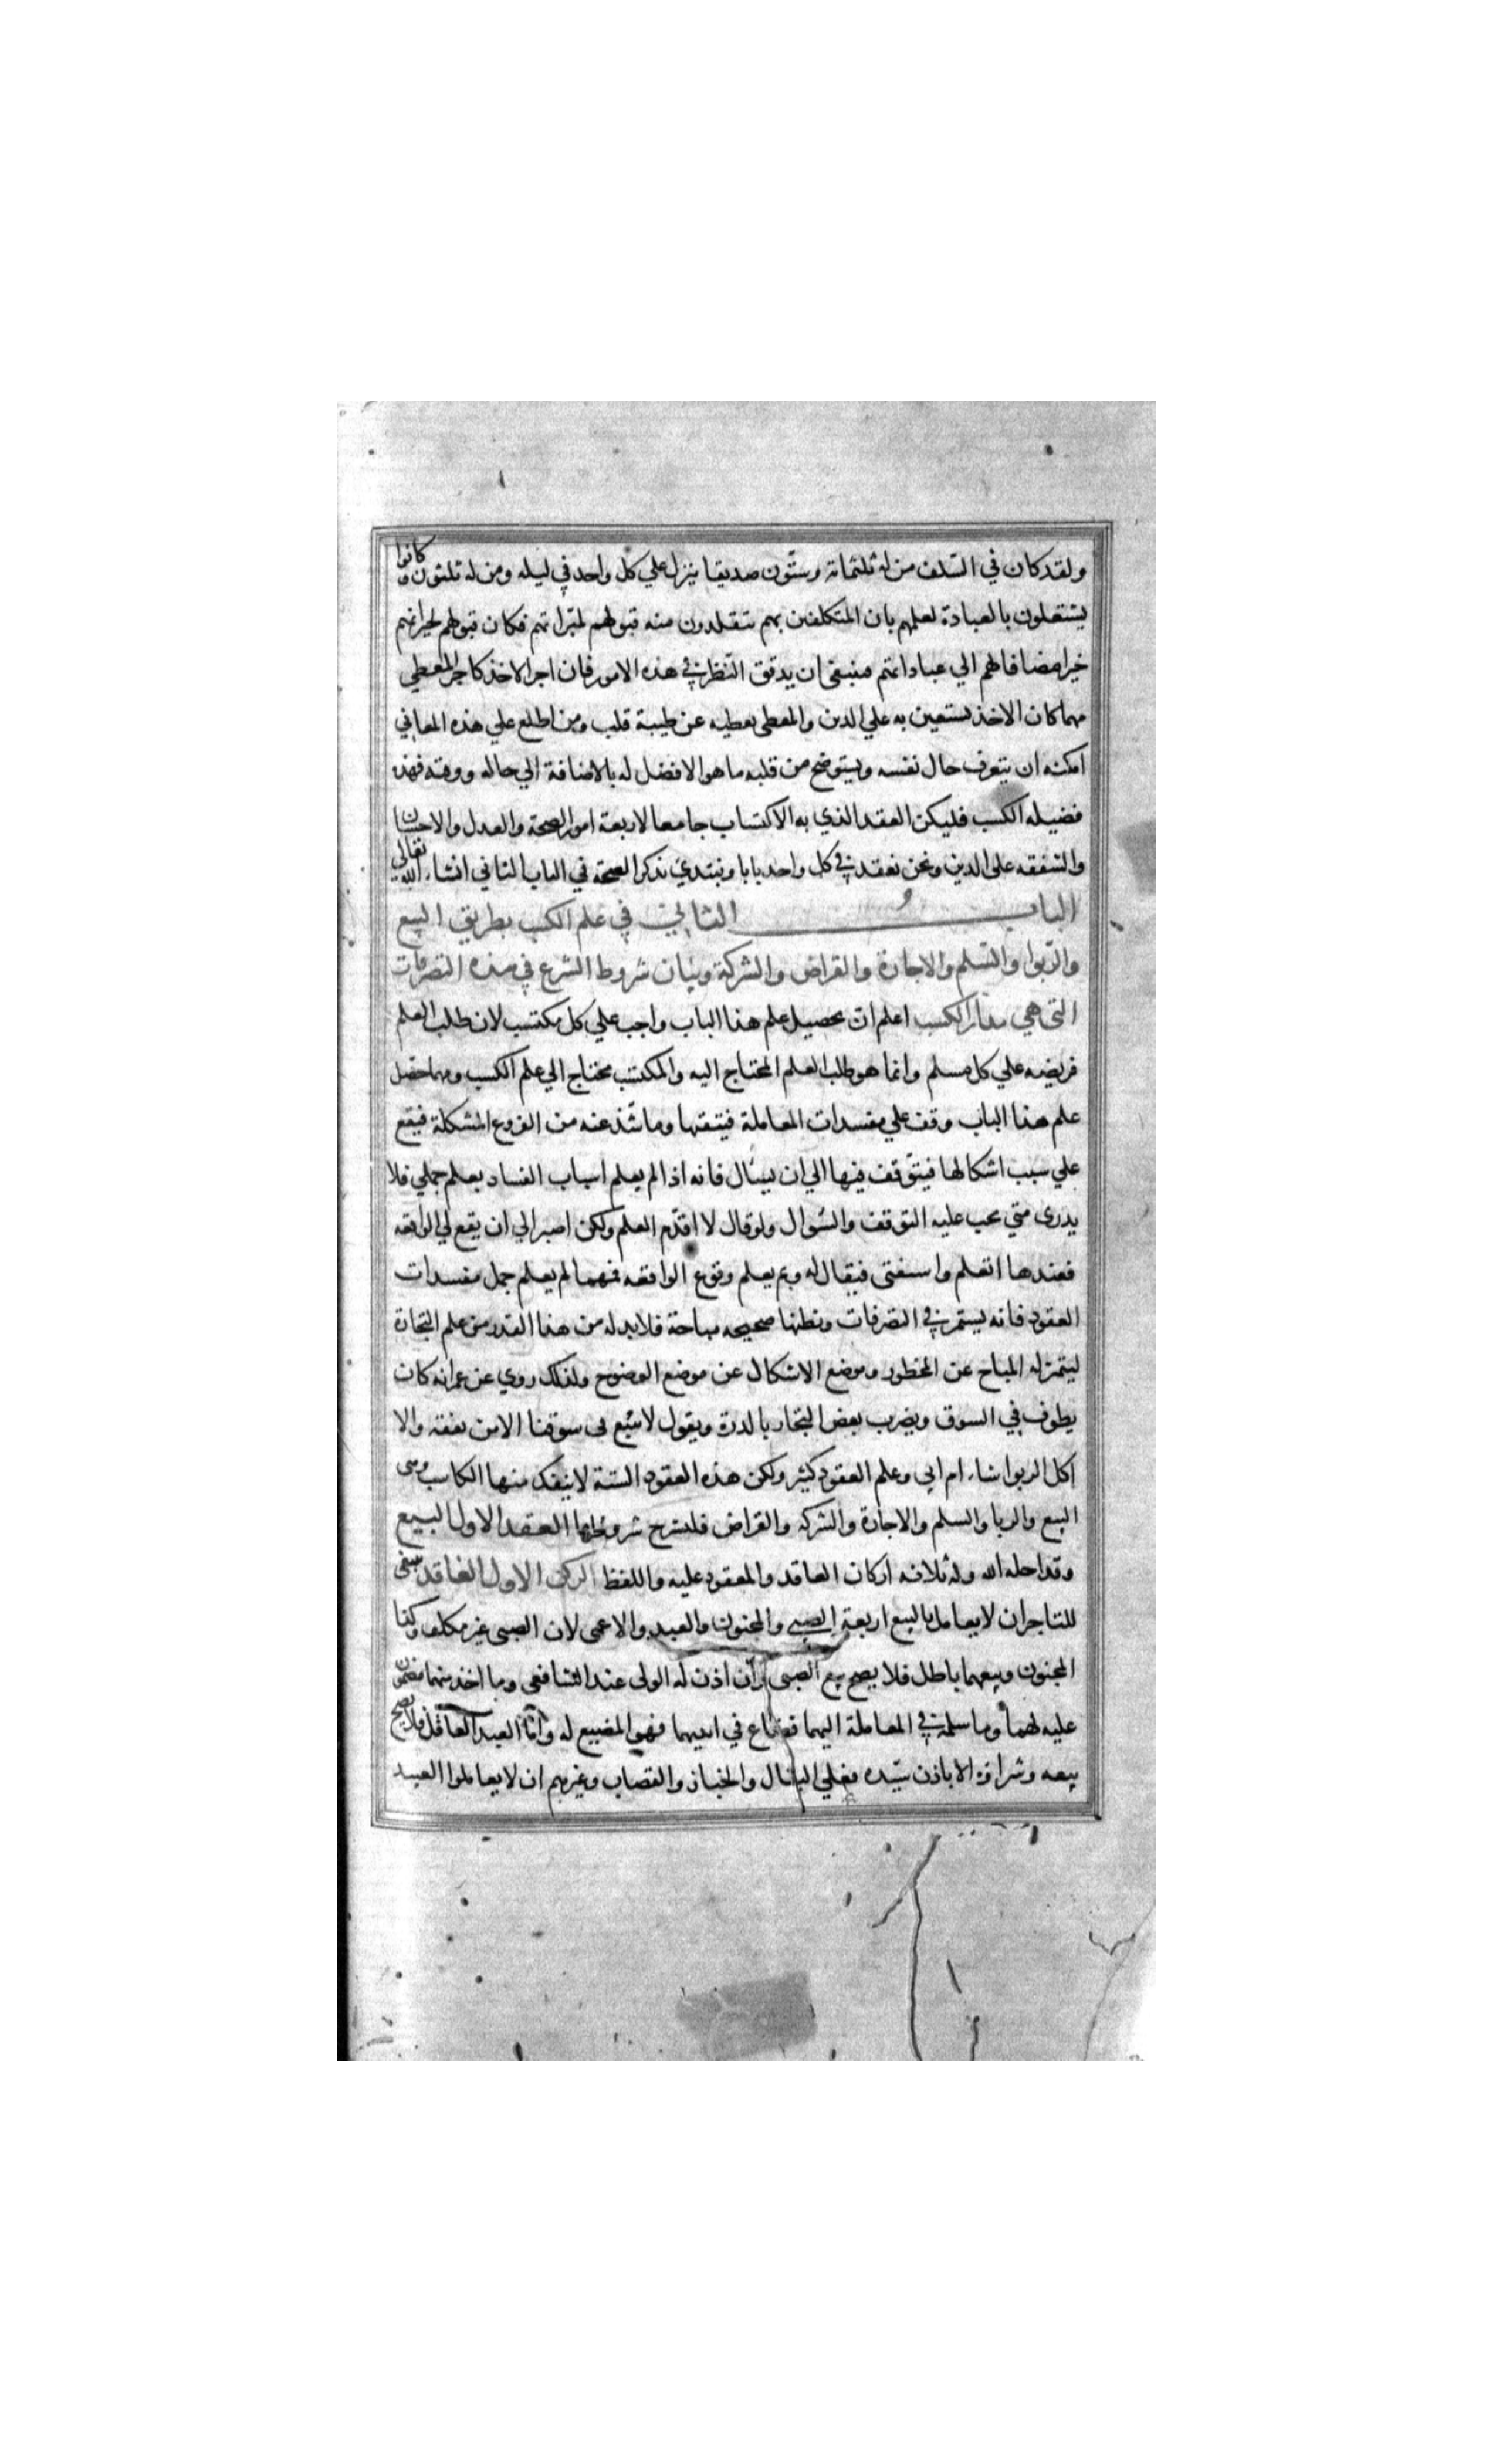 ولقد كان في السّلف من له ثلثمائة وستّون صديقا ينزل علي كل واحد في ليله ومن له ثلثون وكانوا
يشتغلون بالعبادة لعلمهم بان المتكلفين بهم يتقلدون منه قبولهم لمبّراتهم فكان قبولهم لخيراتهم
خيرا مضافا لهم الي عباداتهم فينبغى ان يدقق النّظر في هذه الامور فان اجر الاخذ كاجر المعطي
مهما كان الاخذ يستعين به علي الدين والمعطى يعطيه عن طيبة قلب ومن اطلع علي هذه المعاني
امكنه ان يتعرف حال نفسه ويستوضح من قلبه ما هو الافضل له بالاضافة الي حاله ووقته فهذه
فضيله الكسب فليكن العقد الذي به الاكتساب جامعا لاربعة امور الصحة والعدل والاحسان
والشفقه على الدين ونحن نعقد في كل واحد بابا ونبتدي بذكر الصحة في الباب الثاني انشاء الله تعالي
الباب الثاني في علم الكسب بطريق البيع
والرّبوا والسّلم والاجارة والقراض والشركة وبيان شروط الشرع في هذه التصرفات
التى هي مدار الكسب اعلم انّ تحصيل علم هذا الباب واجب علي كل مكتسب لان طلب العلم
فريضه علي كل مسلم وانما هو طلب العلم المحتاج اليه والمكتسب محتاج الي علم الكسب ومهما حصّل
علم هذا الباب وقف علي مفسدات المعاملة فيتقيها وما شذ عنه من الفروع المشكلة فيقع
علي سبب اشكالها فيتوّقف فيها الي ان يسأل فانه اذا لم يعلم اسباب الفساد بعلم جملي فلا
يدرى متي يجب عليه التوقف والسّوال ولو قال لا اقدّم العلم ولكن اصبر الي ان يقع لي الواقعه
فعندها اتعلم واستفتى فيقال له وبم يعلم وقوع الواقعه فمهما لم يعلم جمل مفسدات
العقود فانه يستمر في التصرفات ويظنها صحيحه مباحة فلا بد له من هذا القدر من علم التجارة
ليتميز له المباح عن المحظور وموضع الاشكال عن موضع الوضوح ولذلك روي عن عمر انه كان
يطوف في السوق ويضرب بعض التجار بالدرة ويقول لا يبيع في سوقنا الا من يفقه والا
اكل الربوا شاء ام ابي وعلم العقود كثير ولكن هذه العقود الستة لا ينفك منها الكاسب وهى
البيع والربا والسلم والاجارة والشركه والقراض فلنشرح شروطها العقد الاول البيع
وقد احله الله وله ثلاثه اركان العاقد والمعقود عليه واللفظ الركن الاول العاقد ينبغى
للتاجر ان لا يعامل بالبيع اربعة الصبي والمجنون والعبد والاعمى لان الصبى غير مكلف وكذا
المجنون وبيعهما باطل فلا يصح بيع الصبى وان اذن له الولى عند الشافعى وما اخذ منهما مضمون
عليه لهما وما سلمه في المعاملة اليهما فضاع في ايديهما فهو المضيع له وامّا العبد العاقل فلا يصح
بيعه وشراؤه الا باذن سيّده فعلي البقال والخباز والقصاب وغيرهم ان لا يعاملوا العبيد